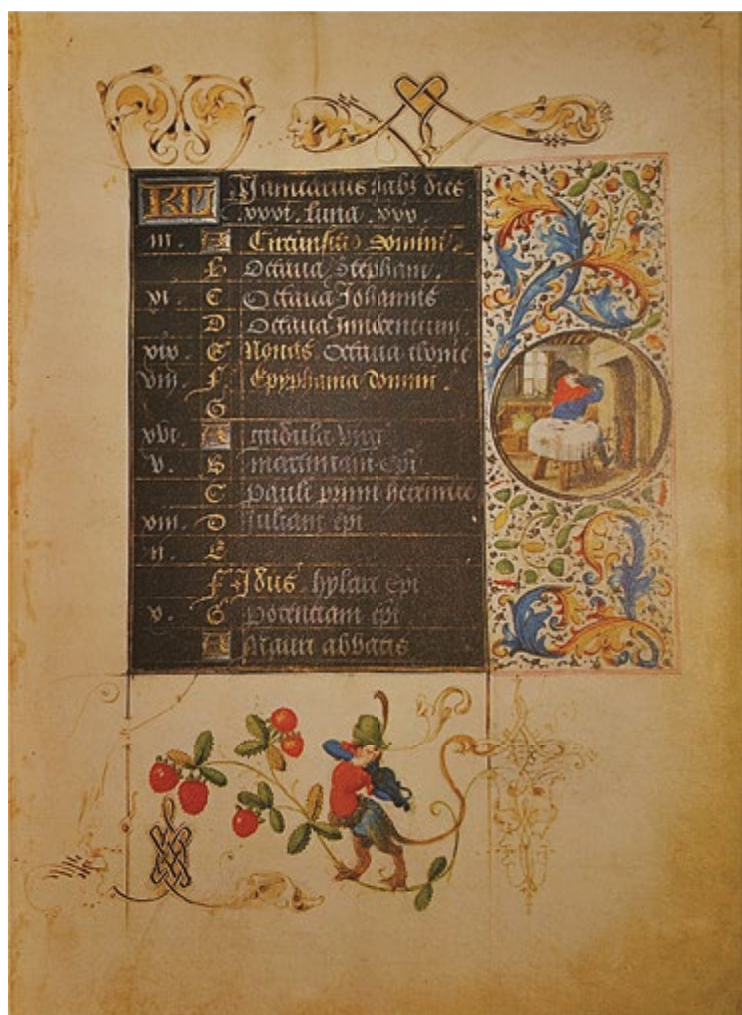 2
KL Januarius habz dies
.xxxi. luna .xxx.
iii. A Circumsisio Domini.
B Octaua Stephani.
xi. C Octaua Johannis
D Octaua Innocentium.
xix. E Nonas Octaua thome
viii. F Epyphania domini.
G
xvi. A gudula virg
v. B epi
C pauli primi heremite
xiii. D Iuliani epi
ii. E
F Idus hylari epi
x. G epi
A Mauri abbatis